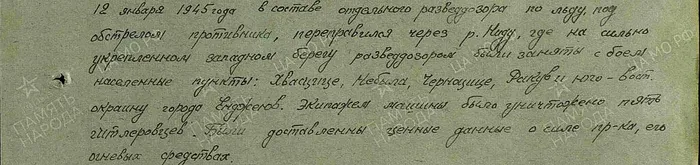 12 января 1945 года в составе отдельного разведдозора по льду, под
обстрелом противника, переправился через р. Ниду, где на сильно
укрепленном западном берегу разведдозором были заняты с боем
населенные пункты: Хвасцице, Небыла, Чернацице, Ракув и юго-вост.
окраину города Енджеюв. Экипажем машины было уничтожено пять
гитлеровцев. Были доставленны ценные данные о силе пр-ка, его
огневых средствах.
ПАМЯТЬ
НАРОДА